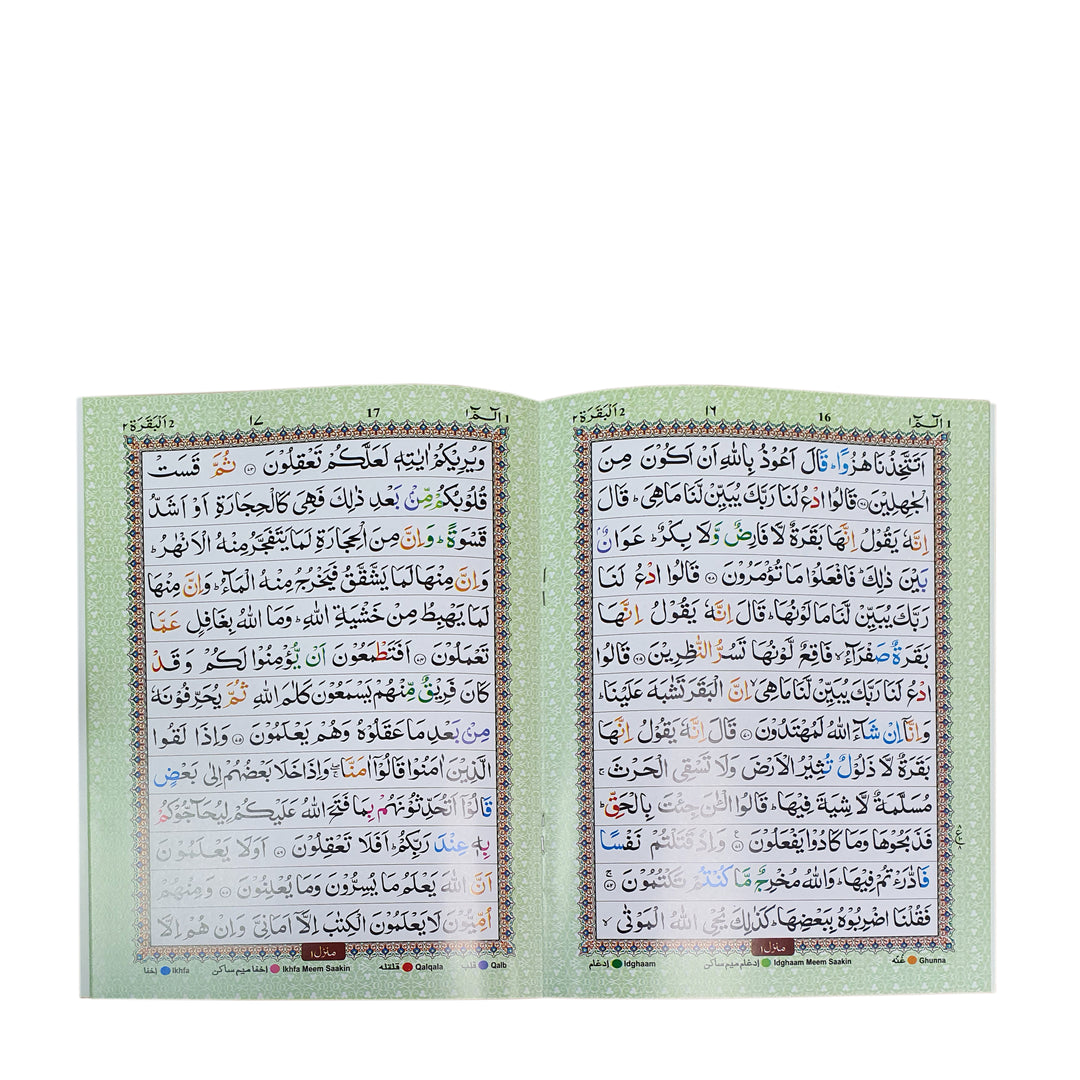 1 الٓمّٓ ١
16
١٦
2 اَلْبَقَرَة ٢
اَتَتَّخِذُنَا هُزُوًا ؕ قَالَ اَعُوْذُ بِاللّٰهِ اَنْ اَكُوْنَ مِنَ
الْجٰهِلِيْنَ ۝ قَالُوا ادْعُ لَنَا رَبَّكَ يُبَيِّنْ لَّنَا مَا هِىَ ؕ قَالَ
اِنَّهٗ يَقُوْلُ اِنَّهَا بَقَرَةٌ لَّا فَارِضٌ وَّلَا بِكْرٌ ؕ عَوَانٌۢ
بَيْنَ ذٰلِكَ ؕ فَافْعَلُوْا مَا تُؤْمَرُوْنَ ۝ قَالُوا ادْعُ لَنَا
رَبَّكَ يُبَيِّنْ لَّنَا مَا لَوْنُهَا ؕ قَالَ اِنَّهٗ يَقُوْلُ اِنَّهَا
بَقَرَةٌ صَفْرَآءُ ۙ فَاقِعٌ لَّوْنُهَا تَسُرُّ النّٰظِرِيْنَ ۝ قَالُوا
ادْعُ لَنَا رَبَّكَ يُبَيِّنْ لَّنَا مَا هِىَ ۙ اِنَّ الْبَقَرَ تَشٰبَهَ عَلَيْنَا ؕ
وَاِنَّاۤ اِنْ شَآءَ اللّٰهُ لَمُهْتَدُوْنَ ۝ قَالَ اِنَّهٗ يَقُوْلُ اِنَّهَا
بَقَرَةٌ لَّا ذَلُوْلٌ تُثِيْرُ الْاَرْضَ وَلَا تَسْقِى الْحَرْثَ ۚ
مُسَلَّمَةٌ لَّا شِيَةَ فِيْهَا ؕ قَالُوا الْـٰٔنَ جِئْتَ بِالْحَقِّ ؕ
فَذَبَحُوْهَا وَمَا كَادُوْا يَفْعَلُوْنَ ۝ وَاِذْ قَتَلْتُمْ نَفْسًا
فَادّٰرَءْتُمْ فِيْهَا ؕ وَاللّٰهُ مُخْرِجٌ مَّا كُنْتُمْ تَكْتُمُوْنَ ۝ ۚ
فَقُلْنَا اضْرِبُوْهُ بِبَعْضِهَا ؕ كَذٰلِكَ يُحْىِ اللّٰهُ الْمَوْتٰى ۙ
منزل ١
غُنّه Ghunna
ادغام میم ساکن Idghaam Meem Saakin
إدغام Idghaam
1 الٓمّٓ ١
17
١٧
2 اَلْبَقَرَة ٢
وَيُرِيْكُمْ اٰيٰتِهٖ لَعَلَّكُمْ تَعْقِلُوْنَ ۝ ثُمَّ قَسَتْ
قُلُوْبُكُمْ مِّنْۢ بَعْدِ ذٰلِكَ فَهِىَ كَالْحِجَارَةِ اَوْ اَشَدُّ
قَسْوَةً ؕ وَاِنَّ مِنَ الْحِجَارَةِ لَمَا يَتَفَجَّرُ مِنْهُ الْاَنْهٰرُ ؕ
وَاِنَّ مِنْهَا لَمَا يَشَّقَّقُ فَيَخْرُجُ مِنْهُ الْمَآءُ ؕ وَاِنَّ مِنْهَا
لَمَا يَهْبِطُ مِنْ خَشْيَةِ اللّٰهِ ؕ وَمَا اللّٰهُ بِغَافِلٍ عَمَّا
تَعْمَلُوْنَ ۝ اَفَتَطْمَعُوْنَ اَنْ يُّؤْمِنُوْا لَكُمْ وَقَدْ
كَانَ فَرِيْقٌ مِّنْهُمْ يَسْمَعُوْنَ كَلٰمَ اللّٰهِ ثُمَّ يُحَرِّفُوْنَهٗ
مِنْۢ بَعْدِ مَا عَقَلُوْهُ وَهُمْ يَعْلَمُوْنَ ۝ وَاِذَا لَقُوا
الَّذِيْنَ اٰمَنُوْا قَالُوْۤا اٰمَنَّا ۖ وَاِذَا خَلَا بَعْضُهُمْ اِلٰى بَعْضٍ
قَالُوْۤا اَتُحَدِّثُوْنَهُمْ بِمَا فَتَحَ اللّٰهُ عَلَيْكُمْ لِيُحَآجُّوْكُمْ
بِهٖ عِنْدَ رَبِّكُمْ ؕ اَفَلَا تَعْقِلُوْنَ ۝ اَوَلَا يَعْلَمُوْنَ
اَنَّ اللّٰهَ يَعْلَمُ مَا يُسِرُّوْنَ وَمَا يُعْلِنُوْنَ ۝ وَمِنْهُمْ
اُمِّيُّوْنَ لَا يَعْلَمُوْنَ الْكِتٰبَ اِلَّاۤ اَمَانِىَّ وَاِنْ هُمْ اِلَّا
منزل ١
قلب Qalb
قلقله Qalqala
إخفا میم ساکن Ikhfa Meem Saakin
إخفا Ikhfa